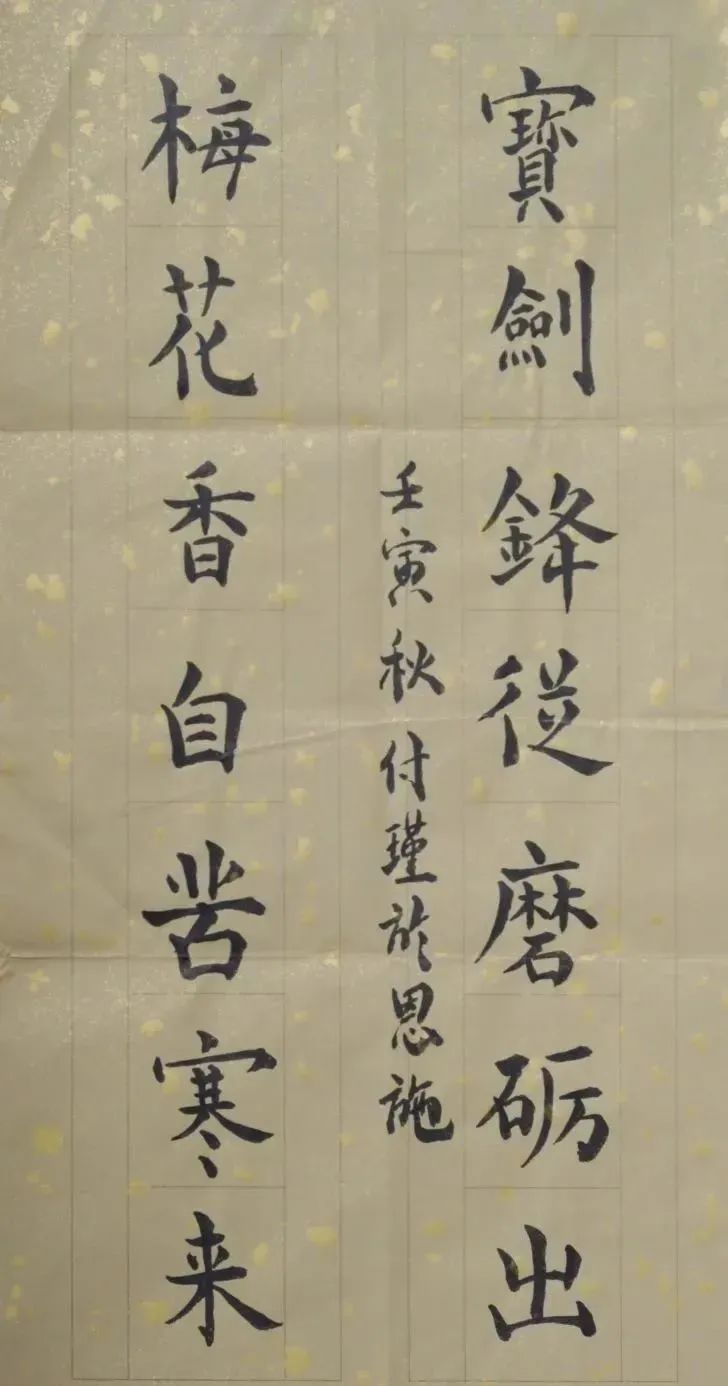 寶劍鋒從磨砺出
壬寅秋付瑾於恩施
梅花香自苦寒来